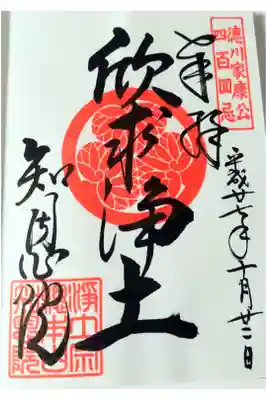 徳川家康公
四百回忌
奉拝
平成廿七年十月廿二日
欣求浄土
知恩院
浄土宗